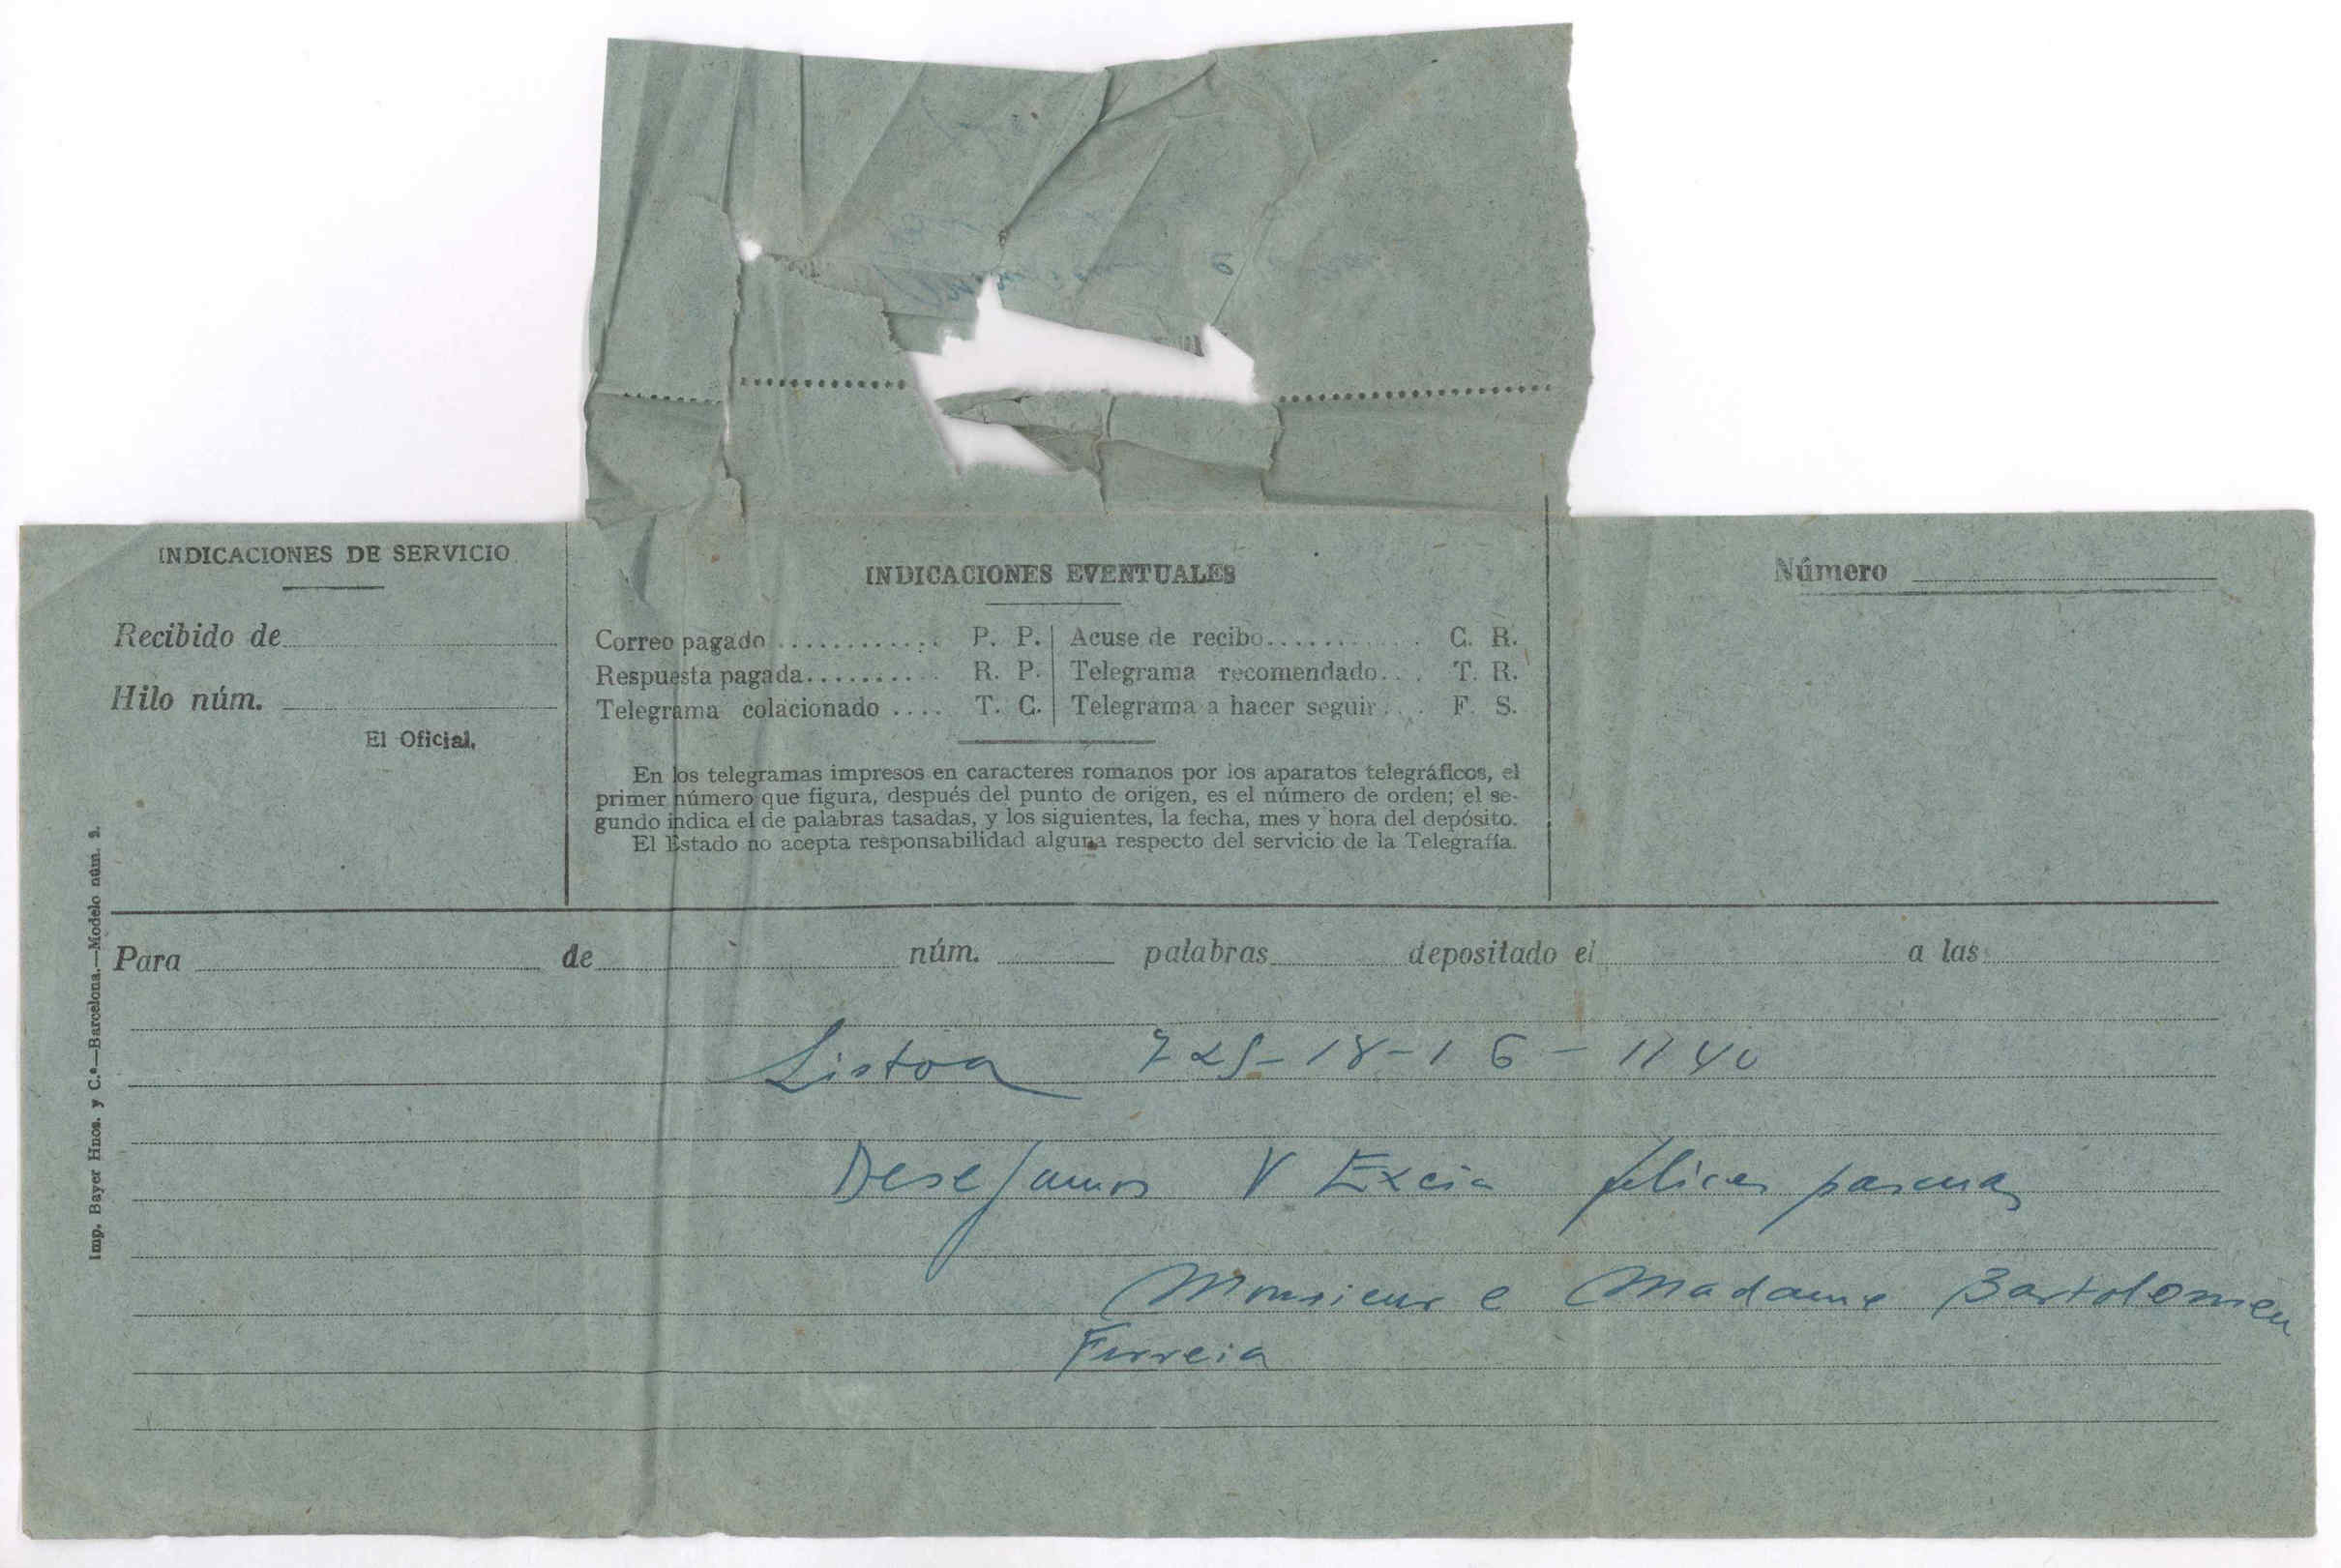 INDICACIONES DE SERVICIO
Recibido de
Hilo núm.
El Oficial,
INDICACIONES EVENTUALES
Correo pagado ............ P. P.
Respuesta pagada.......... R. P.
Telegrama colacionado .... T. C.
Acuse de recibo.......... C. R.
Telegrama recomendado... T. R.
Telegrama a hacer seguir... F. S.
En los telegramas impresos en caracteres romanos por los aparatos telegráficos, el
primer número que figura, después del punto de origen, es el número de orden; el se-
gundo indica el de palabras tasadas, y los siguientes, la fecha, mes y hora del depósito.
El Estado no acepta responsabilidad alguna respecto del servicio de la Telegrafía.
Número
Imp. Bayer Hnos. y C.ª—Barcelona.—Modelo núm. 2.
Para de núm. palabras depositado el a las
Lisboa 725-18-16-1140
Desejamos V Excia felices pascuas
Monsieur e Madame Bartolomeu
Ferreia